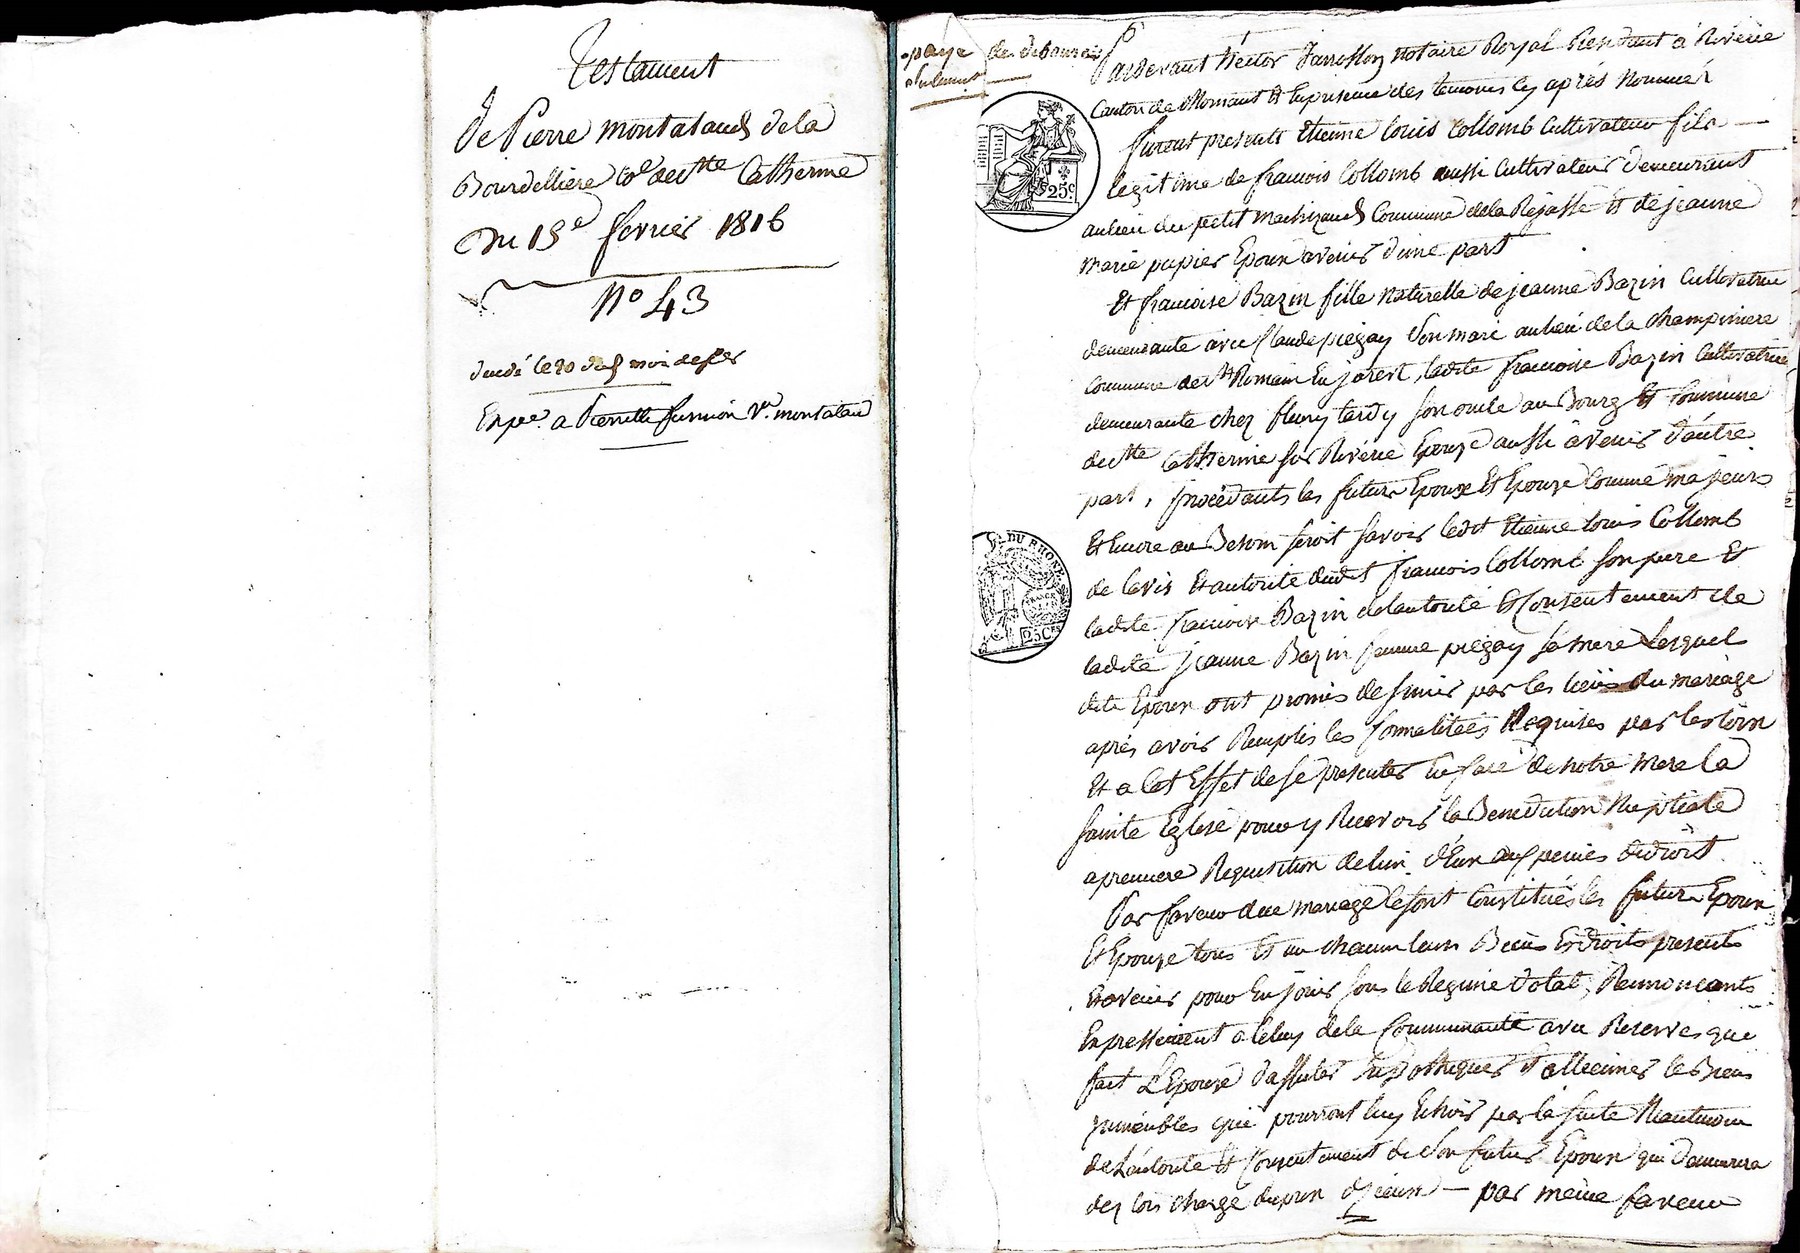 Testament
de Pierre montaland de la
Bourdelliere Cne de Ste Catherine
Du 15e fevrier 1816
No 43
decdé le 20 du mois de fer
Expée a Pierrette furnion Ve montaland
payé de debourses
seulement
Pardevant Hector Jarrosson notaire Royal Residant à Rivérie
Canton de Mornant Et En presence des temoins Cy après Nommés
furent presents Etienne Louis Collomb Cultivateur fils
legitime de francois Collomb aussi Cultivateur demeurant
au lieu du petit Machizaud Commune de la Rejasse Et de jeanne
Marie pupier Epoux avenir d'une part
25c.
Et francoise Bazin fille naturelle de jeanne Bazin Cultivatrice
demeurante avec Claude piegay Son mari au lieu de la Champiniere
Commune de St Romain En jarest, ladite francoise Bazin Cultivatrice
demeurante chez fleury tardy son oncle au Bourg Et Commune
de Ste Catherine sur Rivérie Epouze aussi avenir d'autre
part, procedants les futurs Epoux Et Epouze Comme majeurs
Et Encore au Besoin seroit savoir ledit Etienne Louis Collomb
DU RHONE
FRANCE
25Ces
de lavis Et autorité dudit francois Collomb son pere Et
ladite francoise Bazin de lautorité Et Consentement de
ladite jeanne Bazin femme piegay sa mere Lesquel
dits Epoux ont promis de sunir par les liens du mariage
après avoir Remplis les formalitées Requises par les loix
Et a Cet Effet de se presenter En face de notre Mere la
Sainte Eglise pour y Recevoir la Benediction Nuptiale
a premiere Requisition de lun d'Eux aux peines de droit
Par faveur du mariage se sont Constitués les futurs Epoux
Et Epouze tous Et un chacun leurs Biens Et droits presents
Et avenir pour En jouir sous le Regime Dotal, Renoncants
Expressement a Celuy de la Communauté avec Reserves que
fait L'Epouze d'assuler hypothequer Et alliener les Biens
immeubles qui pourront luy Echoir par la suite Neantmoins
de L'autorité Et Consentement de Son futur Epoux qui demeurera
dez lors chargé du prix d'Iceux — par même faveur